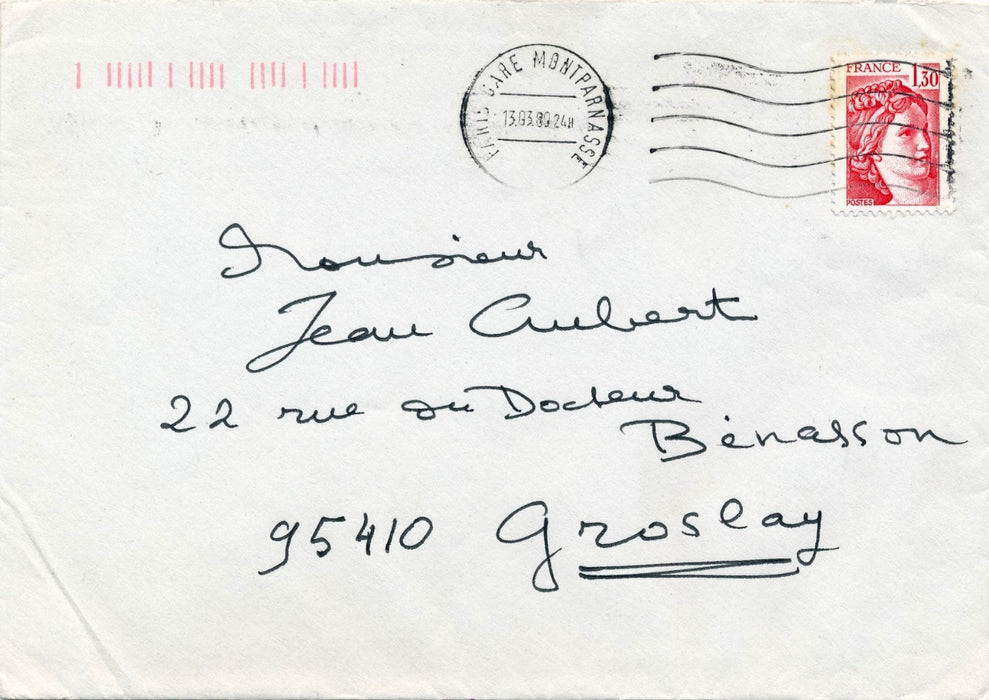 PARIS GARE MONTPARNASSE
13.03.80 24H
FRANCE 1,30
POSTES
Monsieur
Jean Aubert
22 rue du Docteur
Bénasson
95410 Groslay